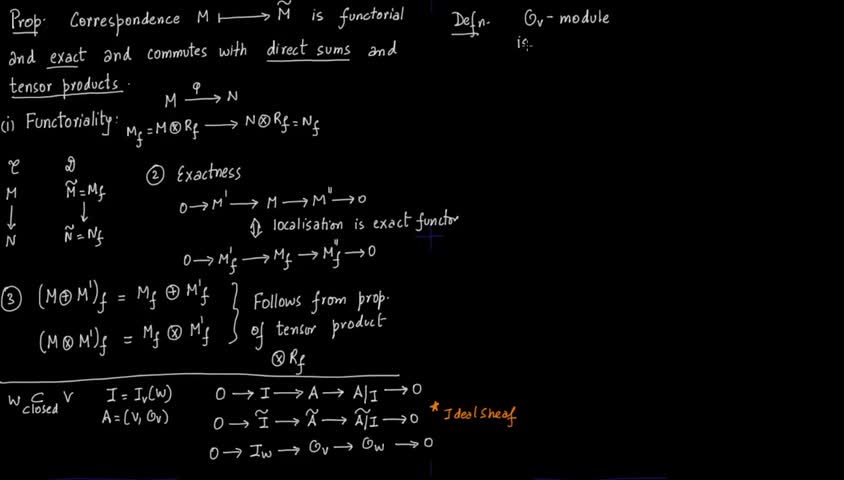 Prop. Correspondence M ⟼ M̃ is functorial
and exact and commutes with direct sums and
tensor products.
(i) Functoriality: M --φ--> N
M_f = M ⊗ R_f → N ⊗ R_f = N_f
𝒞 𝒟
M M̃ = M_f
↓ ↓
N Ñ = N_f
② Exactness
0 → M' → M → M'' → 0
⇕ localisation is exact functor
0 → M'_f → M_f → M''_f → 0
③ (M ⊕ M')_f = M_f ⊕ M'_f
(M ⊗ M')_f = M_f ⊗ M'_f
} Follows from prop.
of tensor product
⊗ R_f
W ⊂ V
closed
I = I_V(W)
A = (V, O_V)
0 → I → A → A/I → 0
0 → Ĩ → Ã → Ã/I → 0
0 → I_W → O_V → O_W → 0
* Ideal Sheaf
Defn. O_V - module
is